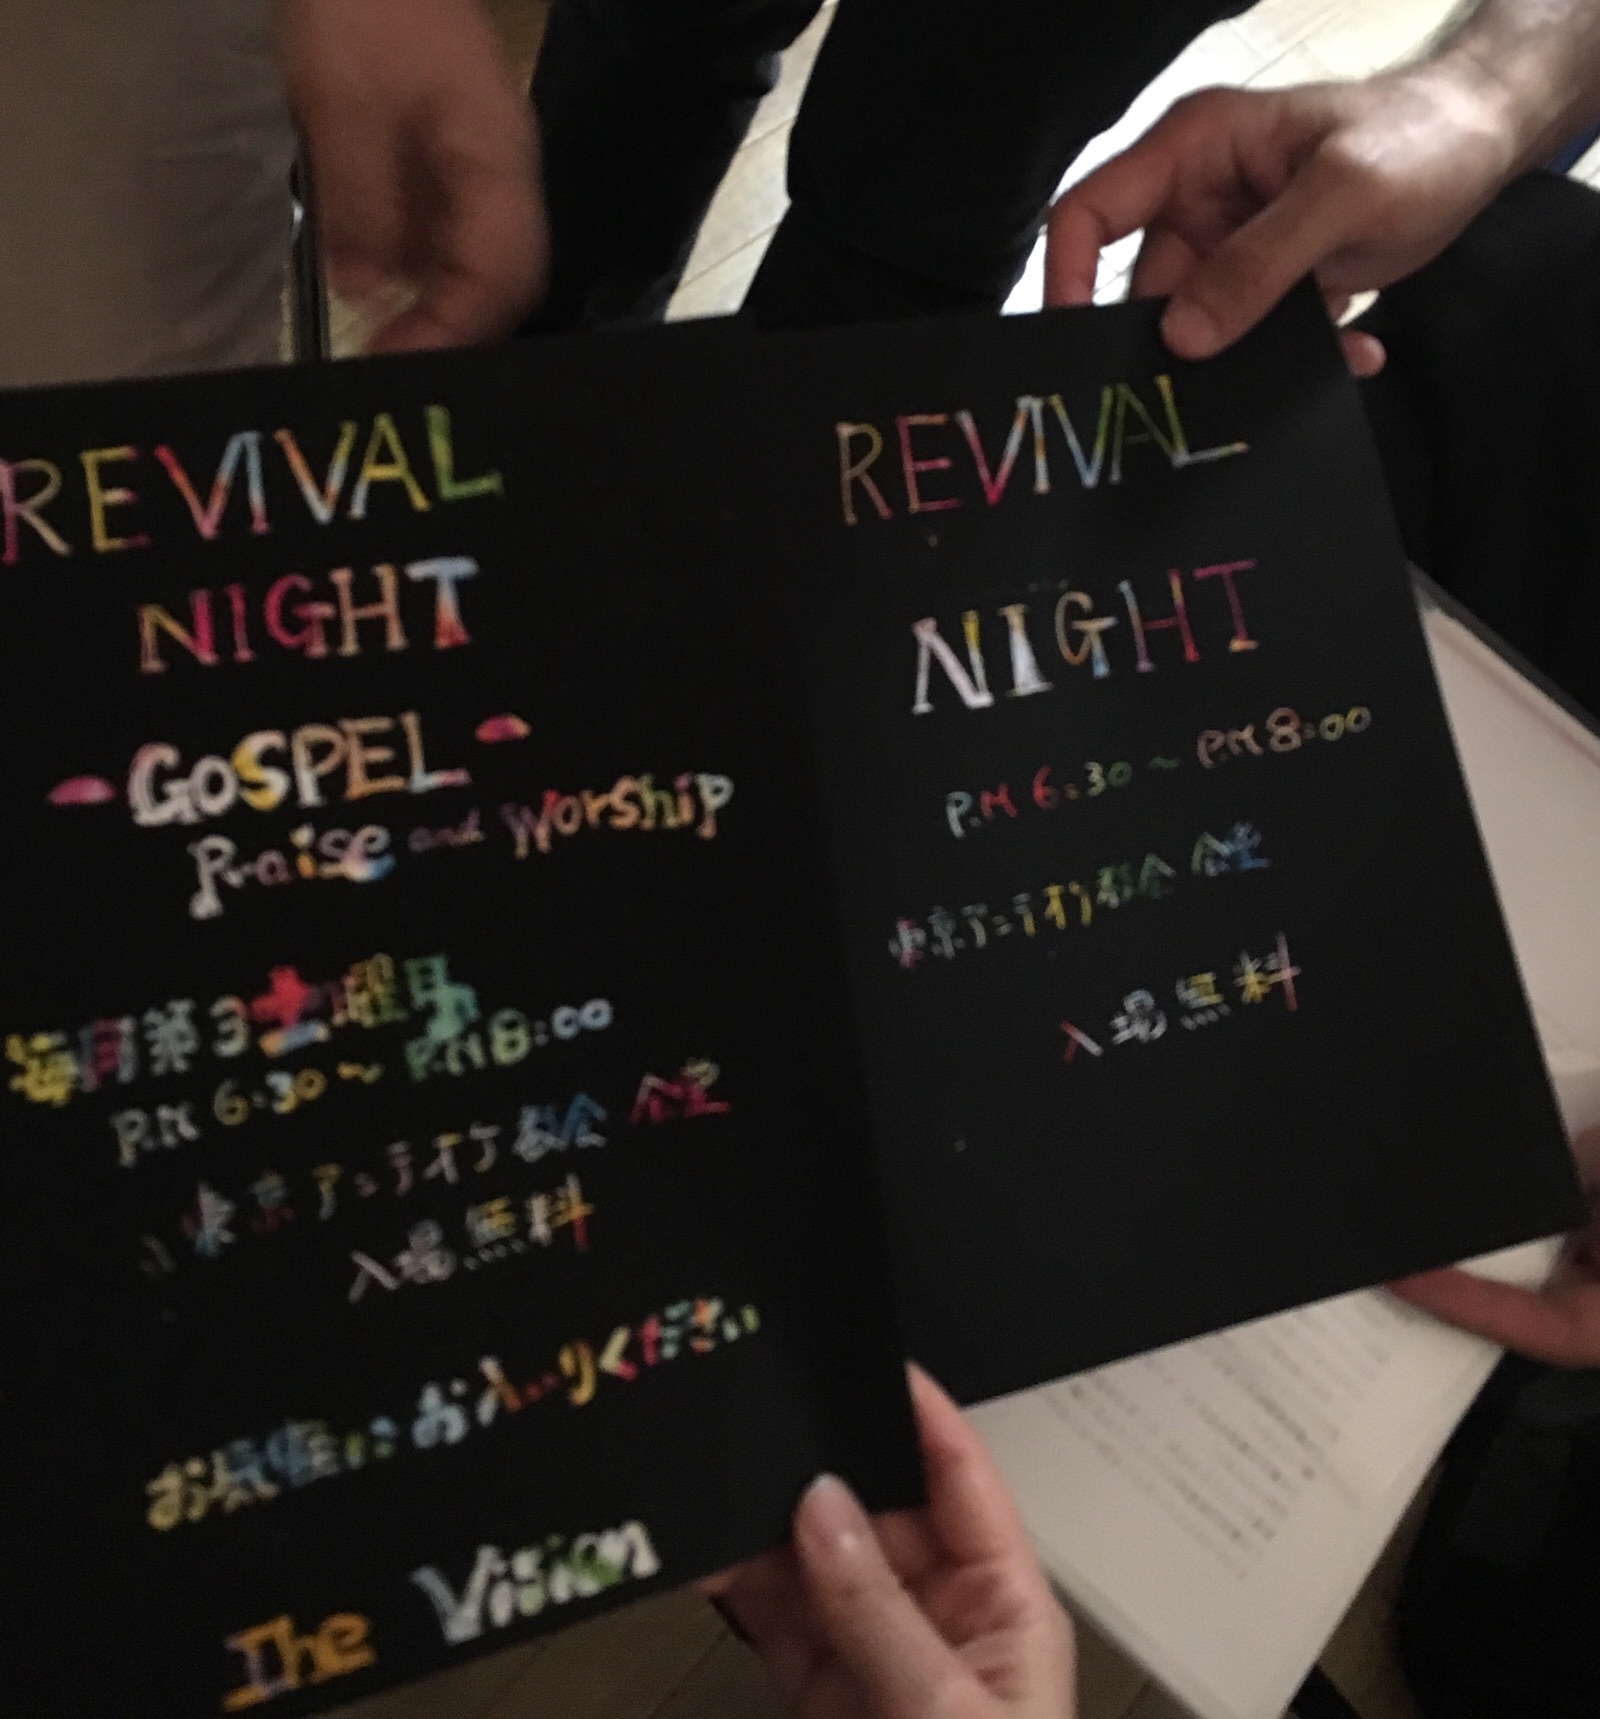 REVIVAL
NIGHT
- GOSPEL -
Praise and Worship
毎月第3土曜日
P.M 6:30 ~ P.M 8:00
東京アンテオケ教会 会堂
入場無料
お気軽にお入りください
The Vision
REVIVAL
NIGHT
P.M 6:30 ~ P.M 8:00
東京アンテオケ教会 会堂
入場無料